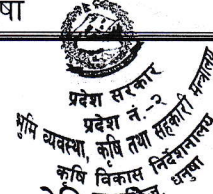 षा
प्रदेश सरकार
प्रदेश नं.-२
भूमि व्यवस्था, कृषि तथा सहकारी मन्त्रालय
कृषि विकास निर्देशनालय
धनुषा